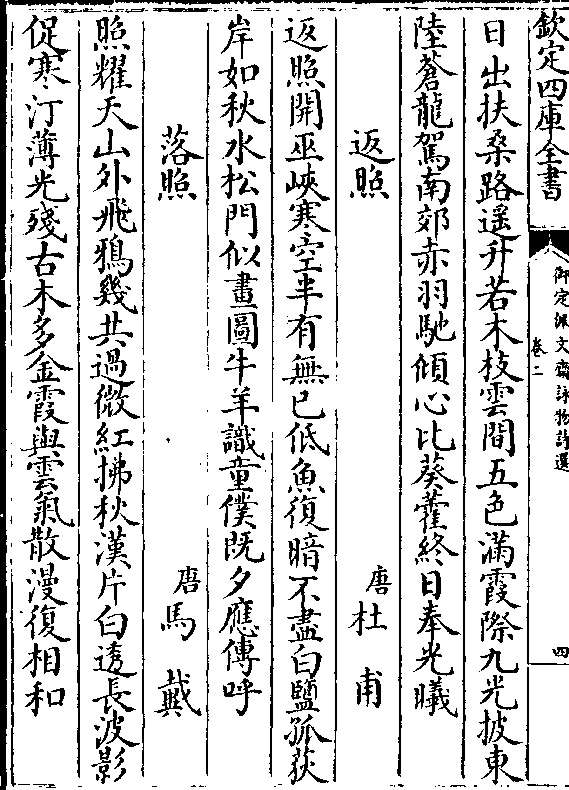 欽定四庫全書
御定佩文齋詠物詩選
卷二
四
日出扶桑路遥升若木枝雲間五色滿霞際九光披東
陸蒼龍駕南郊赤羽馳傾心比葵藿終日奉光曦
返照
唐杜甫
返照開巫峽寒空半有無已低魚復暗不盡白鹽孤荻
岸如秋水松門似畫圖牛羊識童僕既夕應傳呼
落照
唐馬戴
照耀天山外飛鴉幾共過微紅拂秋漢片白透長波影
促寒汀薄光殘古木多金霞與雲氣散漫復相和